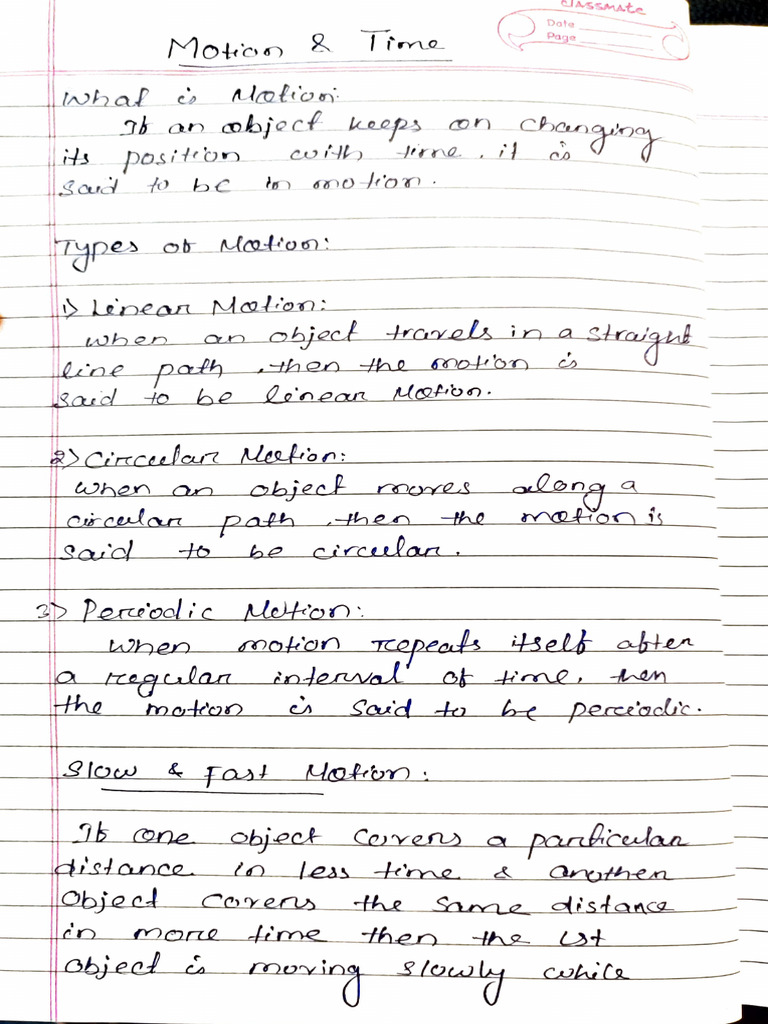 classmate
Date
Page
Motion & Time
What is Motion:
If an object keeps on changing
its position with time, it is
said to be in motion.
Types of Motion:
1) Linear Motion:
when an object travels in a straight
line path, then the motion is
said to be linear Motion.
2) Circular Motion:
when an object moves along a
circular path, then the motion is
said to be circular.
3) Periodic Motion:
When motion repeats itself after
a regular interval of time, then
the motion is said to be periodic.
Slow & Fast Motion:
If one object covers a particular
distance in less time & another
object covers the same distance
in more time then the 1st
object is moving slowly while